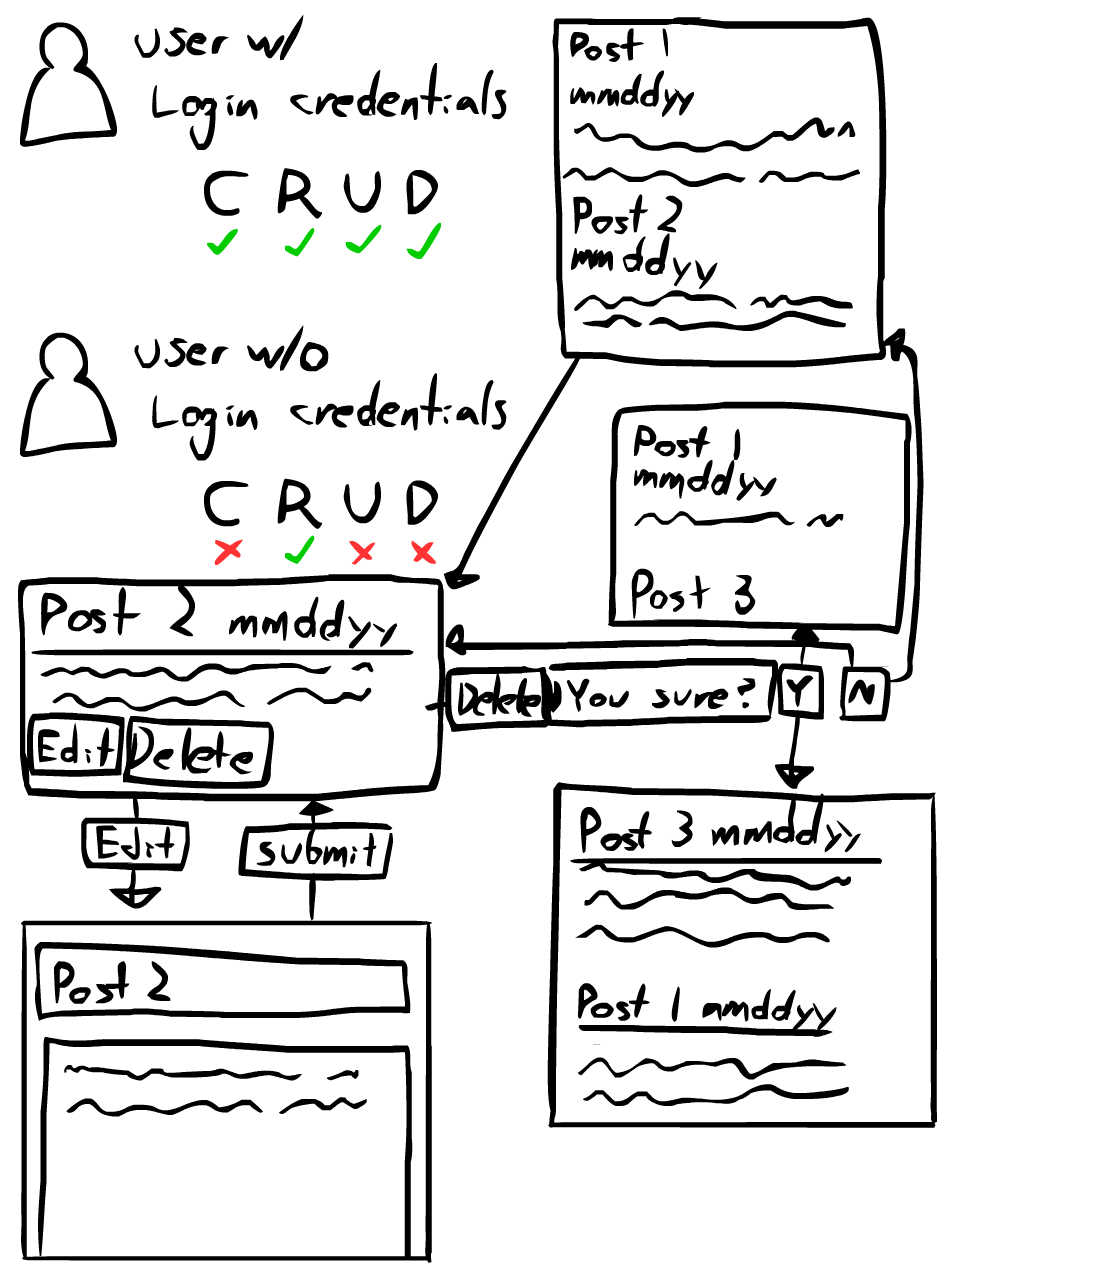 User w/
Login credentials
C R U D
User w/o
Login credentials
C R U D
Post 1
mmddyy
Post 2
mmddyy
Post 1
mmddyy
Post 3
Post 2 mmddyy
Edit Delete
Delete You sure? Y N
Edit
submit
Post 2
Post 3 mmddyy
Post 1 amddyy